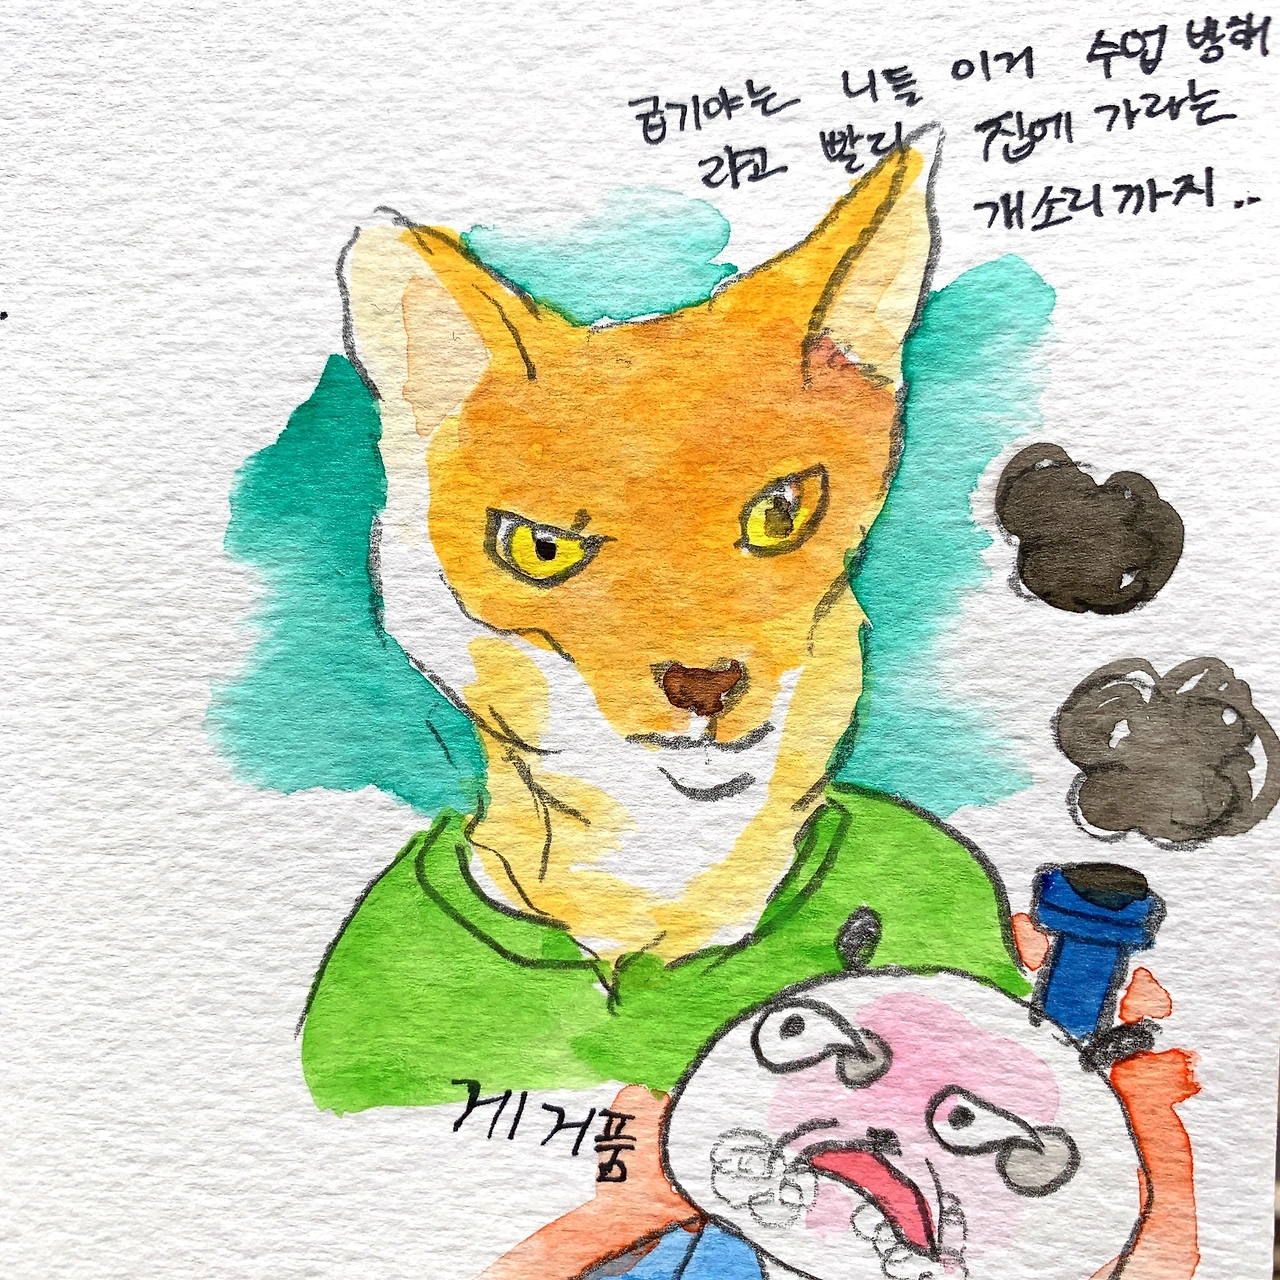 급기야는 니들 이거 수업 방해
라고 빨리 집에 가라는
개소리까지..
게거품